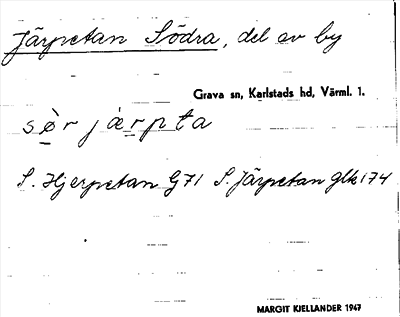 Järpetan Södra, del av by
Grava sn, Karlstads hd, Värml. l.
sø̀r jæ̀rpta
S. Hjerpetan G71 S. Järpetan Glk174
MARGIT KJELLANDER 1947